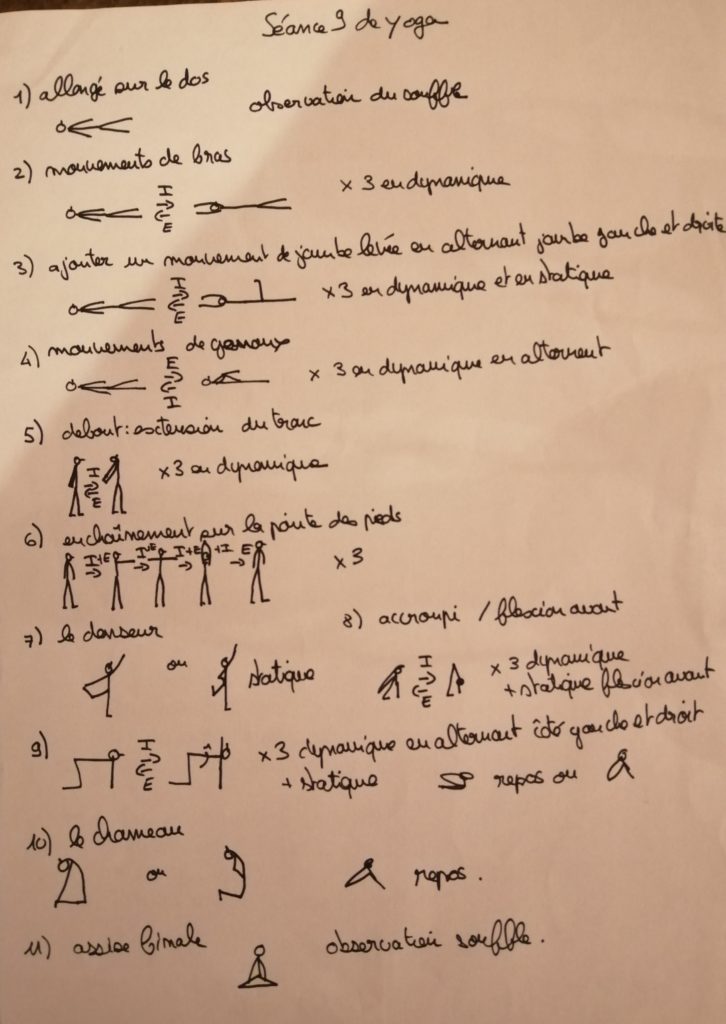 Séance 9 de yoga
1) allongé sur le dos
observation du souffle
2) mouvements de bras
I
E
x 3 en dynamique
3) ajouter un mouvement de jambe levée en alternant jambe gauche et droite
I
E
x 3 en dynamique et en statique
4) mouvements de genoux
E
I
x 3 en dynamique en alternant
5) debout : extension du tronc
I
E
x 3 en dynamique
6) enchaînement sur la pointe des pieds
I+E I+E I+E +I E
x 3
7) le danseur
ou
statique
8) accroupi / flexion avant
I
E
x 3 dynamique
+ statique flexion avant
9)
I
E
x 3 dynamique en alternant côté gauche et droit
+ statique
repos ou
10) le chameau
ou
repos.
11) assise finale
observation souffle.